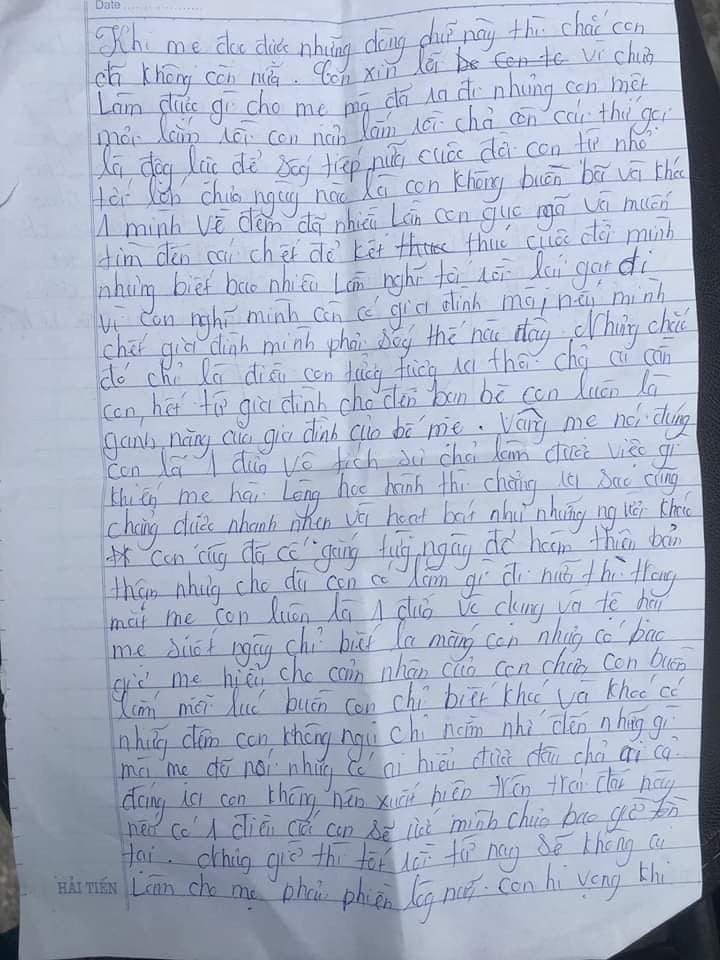 Date
Khi mẹ đọc được những dòng chữ này thì chắc con
đã không còn nữa. Con xin lỗi be con tc vì chưa
Làm được gì cho mẹ mà đã ra đi nhưng con mệt
mỏi lắm rồi con nản lắm rồi chả còn cái thứ gọi
là động lực để sốg tiếp nữa cuộc đời con từ nhỏ
tới lớn chưa ngày nào là con không buồn bã và khóc
1 mình về đêm đã nhiều Lần con gục ngã và muốn
tìm đến cái chết để kết thươc thúc cuộc đời mình
nhưng biết bao nhiêu Lần nghĩ tới rồi lại gạt đi
vì con nghĩ mình còn có gia đình mà, nếu mình
chết gia đình mình phải sốg thế nào đây. Nhưng chắc
đó chỉ là điều con tưởng tượng ra thôi chả ai cần
con, hết từ gia đình cho đến bạn bè con luôn là
gánh nặng của gia đình của bố mẹ. Vâng mẹ nói đúng
con là 1 đứa vô tích sự chả làm được việc gì
khiến mẹ hài Lòng học hành thì chẳng ra sao cũng
chẳng được nhanh nhẹn và hoạt bát như những người khác
con cũg đã cố gắng từg ngày để hoàn thiện bản
thân nhưg cho dù con có làm gì đi nữa thì trong
mắt mẹ con luôn là 1 đứa vô dụng và tệ hại
mẹ suốt ngày chỉ biết la mắng con nhưg có bao
giờ mẹ hiểu cho cảm nhận của con chưa con buồn
lắm mỗi lúc buồn con chỉ biết khóc và khóc có
những đêm con không ngủ chỉ nằm nhớ đến nhữg gì
mà mẹ đã nói nhưg có ai hiểu được đâu chả ai cả
đáng ra con không nên xuất hiện trên trái đất này
nếu có 1 điều ước con sẽ ước mình chưa bao giờ tồn
tại. Nhưg giờ thì tốt rồi từ nay sẽ không ai
Làm cho mẹ phải phiền lòg nữa. con hi vọng khi
HẢI TIẾN